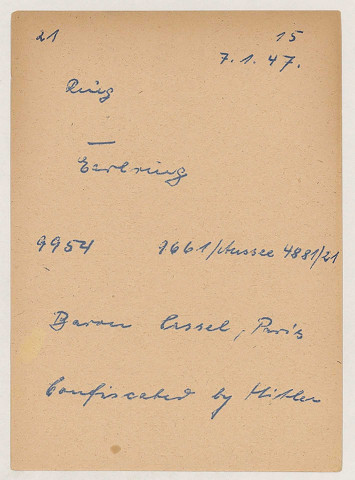 21 15
7.1.47.
Ring
Earlring
9954 9661/Aussee 4881/21
Baron Cassel, Paris
Confiscated by Hitler